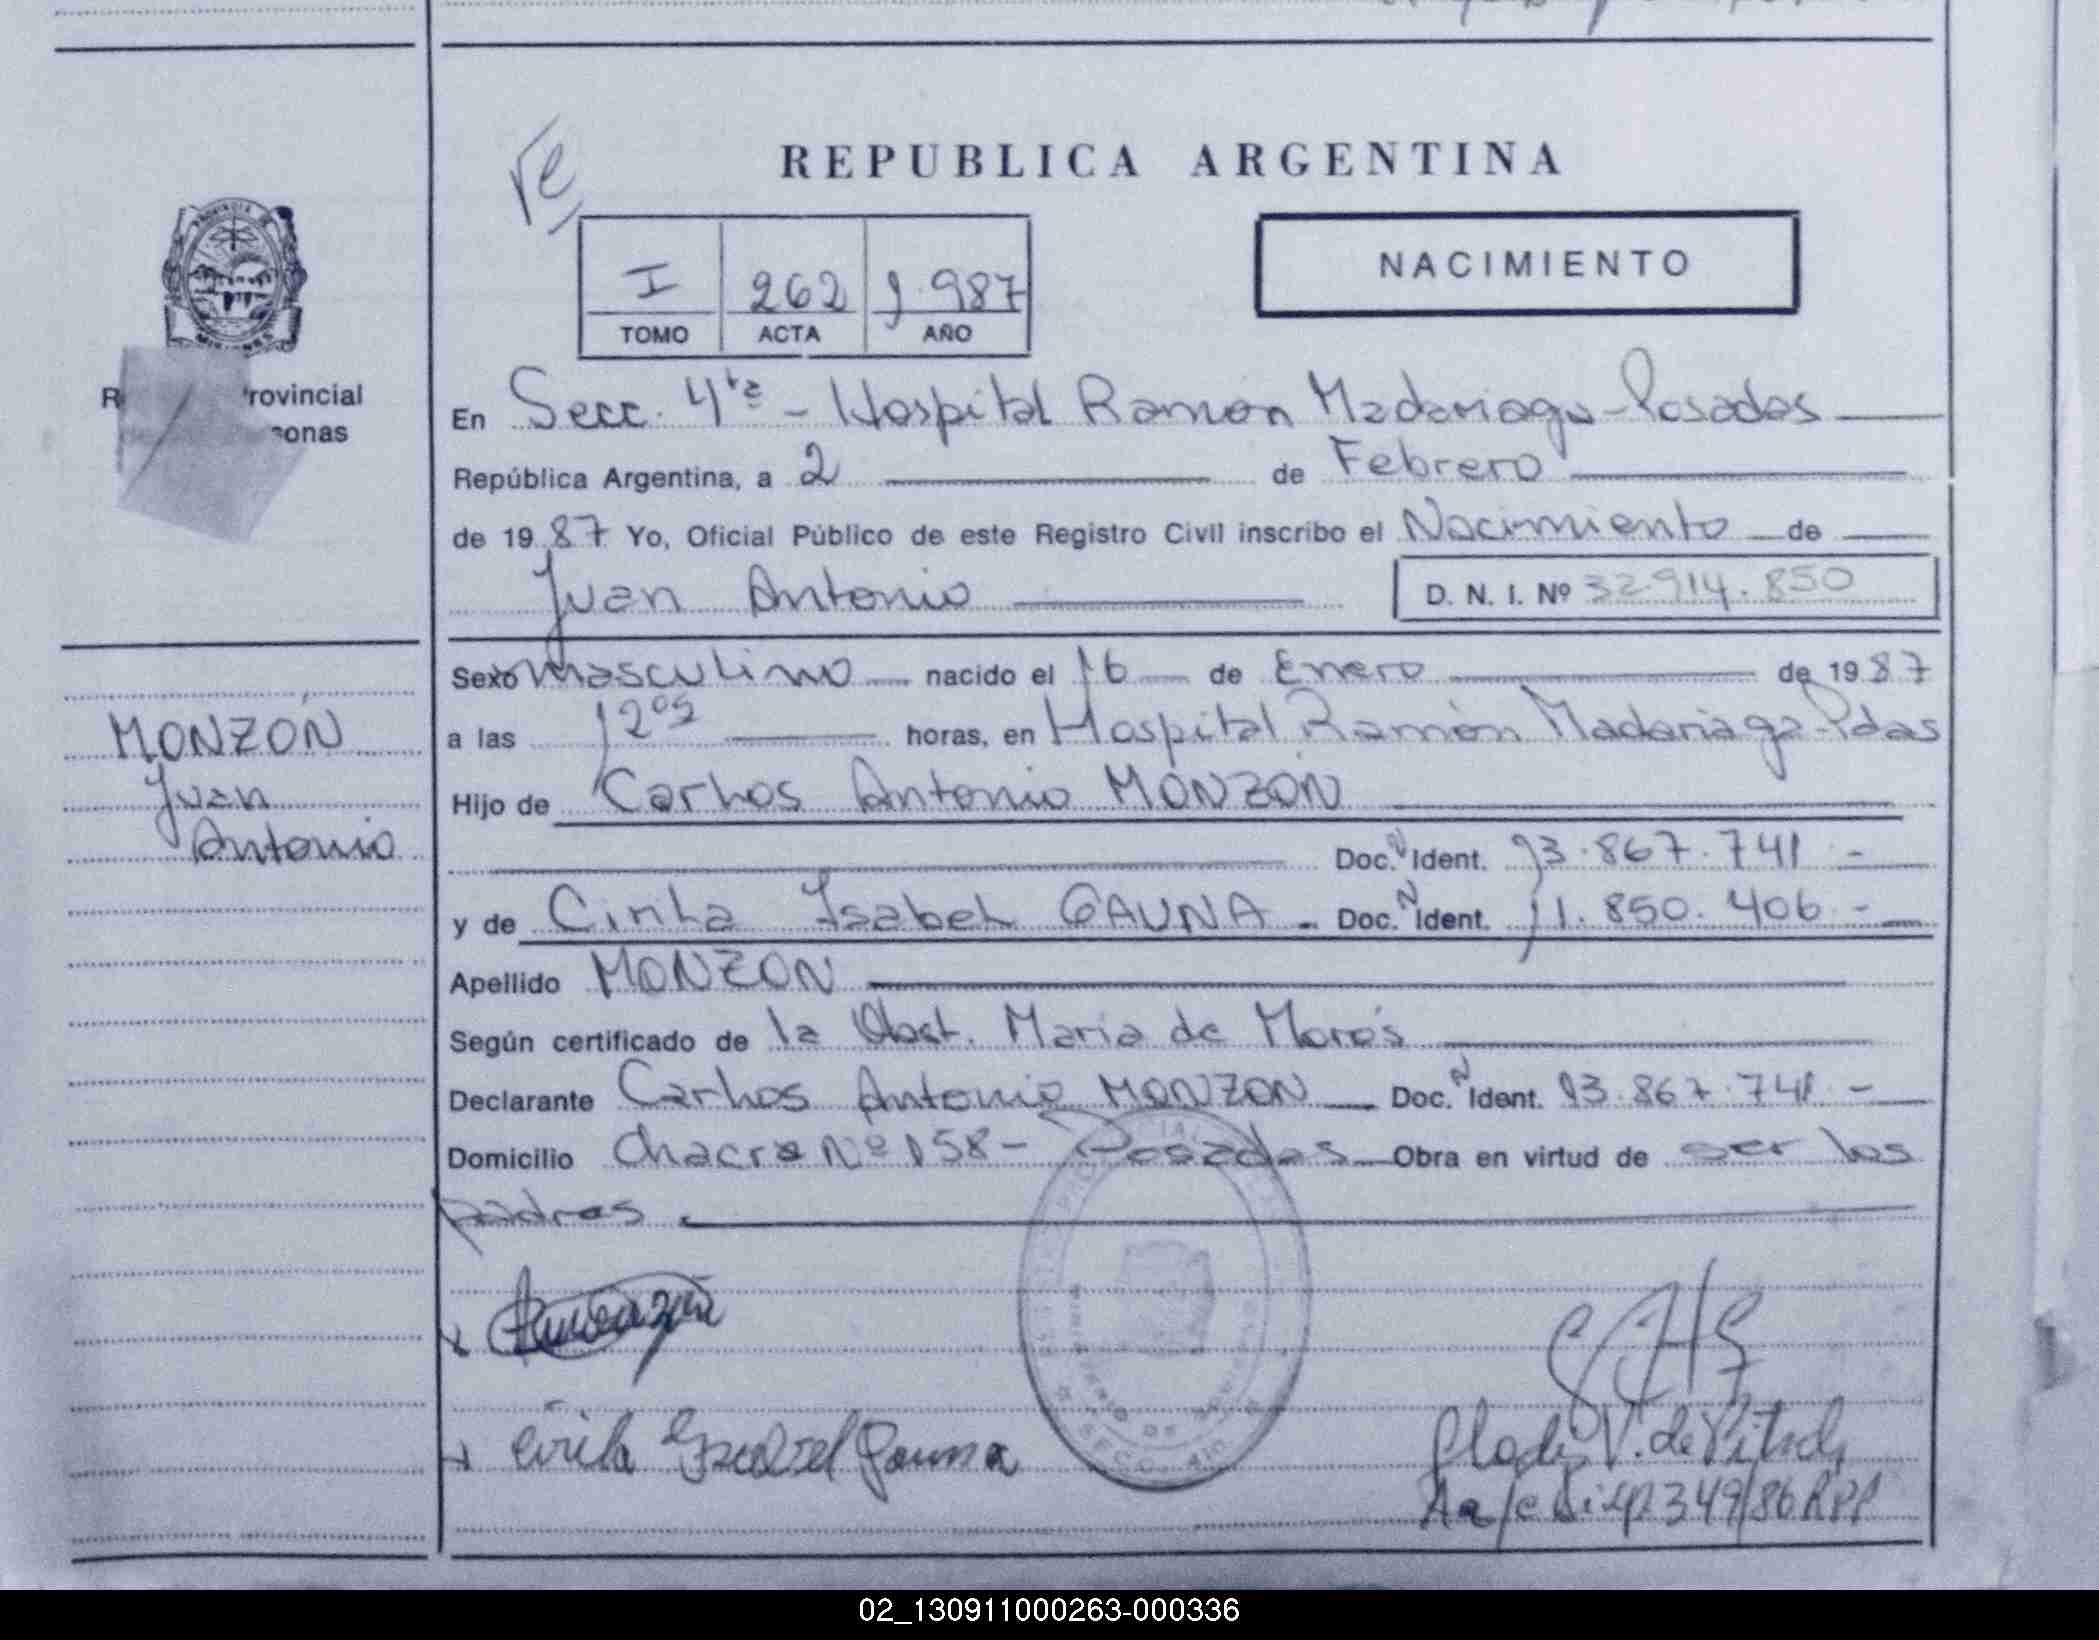 REPUBLICA ARGENTINA
NACIMIENTO
I 262 1.987
TOMO ACTA AÑO
PROVINCIA DE
MISIONES
rovincial
sonas
En Secc. 4ta - Hospital Ramón Madariaga - Posadas
República Argentina, a 2 de Febrero
de 1987 Yo, Oficial Público de este Registro Civil inscribo el Nacimiento de
Juan Antonio D. N. I. Nº 32.914.850
Sexo masculino nacido el 16 de Enero de 1987
a las 12 05 horas, en Hospital Ramón Madariaga-Pdas
Hijo de Carlos Antonio MONZON
Doc. N Ident. 13.867.741 -
y de Cirila Isabel GAUNA - Doc. N Ident. 11.850.406 -
Apellido MONZON
Según certificado de la Obst. Maria de
Declarante Carlos Antonio MONZON Doc. N Ident. 13.867.741 -
Domicilio Chacra Nº 158 - Posadas Obra en virtud de ser los
padres
MONZÓN
Juan
Antonio
Cirila Isabel Gauna
V. de
349/86 RPP
SECC. 4ta
02_130911000263-000336